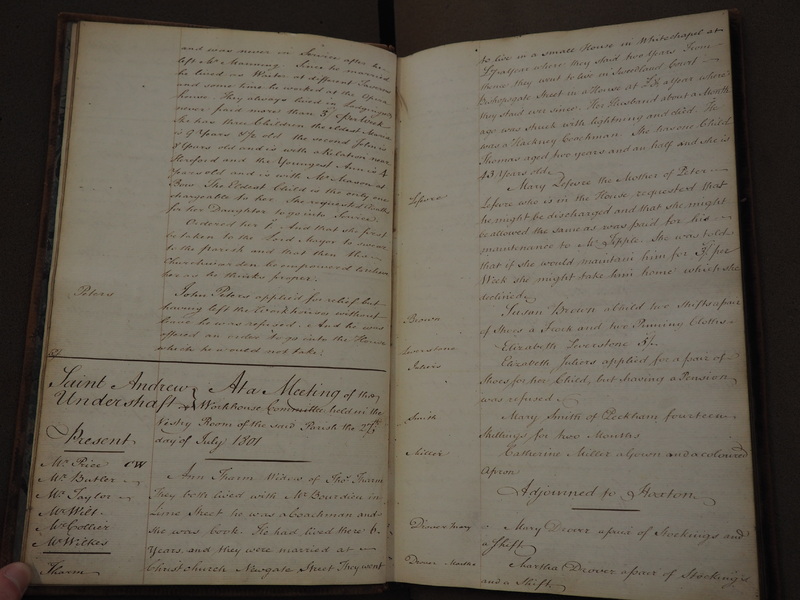 and was never in Service after he
left Mr Manning. Since he married
he lived as Waiter at different Taverns
and some time he worked at the Opera
house. They always lived in Lodgings
never paid more than 3/ per Week
She has three Children the eldest Maria
is 9 Years old the second John is
Years old and is with a Relation near
Hereford and the Youngest Ann is 4
Years old and is with Mr Mason at
Bow. The Eldest Child is the only one
chargeable to her. She requested
for her Daughter to go into Service.
Ordered her 1/ And that she first
be taken to the Lord Mayor to swear
to the Parish and that then the
Churchwarden be empowered to relieve
her as he thinks proper.
Peters
John Peters applied for relief but
having left the Workhouse without
leave he was refused. And he was
offered an order to go into the House
which he would not take.
Saint Andrew Undershaft
At a Meeting of the
Workhouse Committee held in the
Vestry Room of the said Parish the 27th
day of July 1801
Present
Mr Price CW
Mr Butler
Mr Taylor
Mr Wilt
Mr Collier
Mr Wilkes
Tharm
Ann Tharm Widow of Thos Tharm
They both lived with Mr Bourdieu in
Lime Street he was a Coachman and
she was Cook. He had lived there 6
Years, and they were married at
Christchurch Newgate Street They went
to live in a small House in Whitechapel at
a Year where they staid two Years From
thence they went to live in Swedland Court
Bishopsgate Street in a House at a Year where
they staid ever since. Her Husband about a Month
ago was struck with lightning and died. He
was a Hackney Coachman. She has one Child
Thomas aged two years and an half and she is
43 Years old.
Lefevre
Mary Lefevre the Mother of Peter
Lefevre who is in the House requested that
he might be discharged and that she might
be allowed the same as was paid for his
maintenance to Mr Tipple. She was told
that if she would maintain him for 3/ per
Week she might take him home which she
declined.
Brown
Susan Brown a Child two Shifts a pair
of Shoes a Frock and two Pinning Cloths.
Leverstone
Elizabeth Leverstone 5/.
Juliers
Elizabeth Juliers applied for a pair of
Shoes for her Child, but having a Pension
was refused.
Smith
Mary Smith of Peckham fourteen
Shillings for two Months
Miller
Catherine Miller a Gown and a coloured
Apron
Adjourned to Hoxton
Drover Mary
Mary Drover a pair of Stockings and
a Shift
Drover Martha
Martha Drover a pair of Stockings
and a Shift